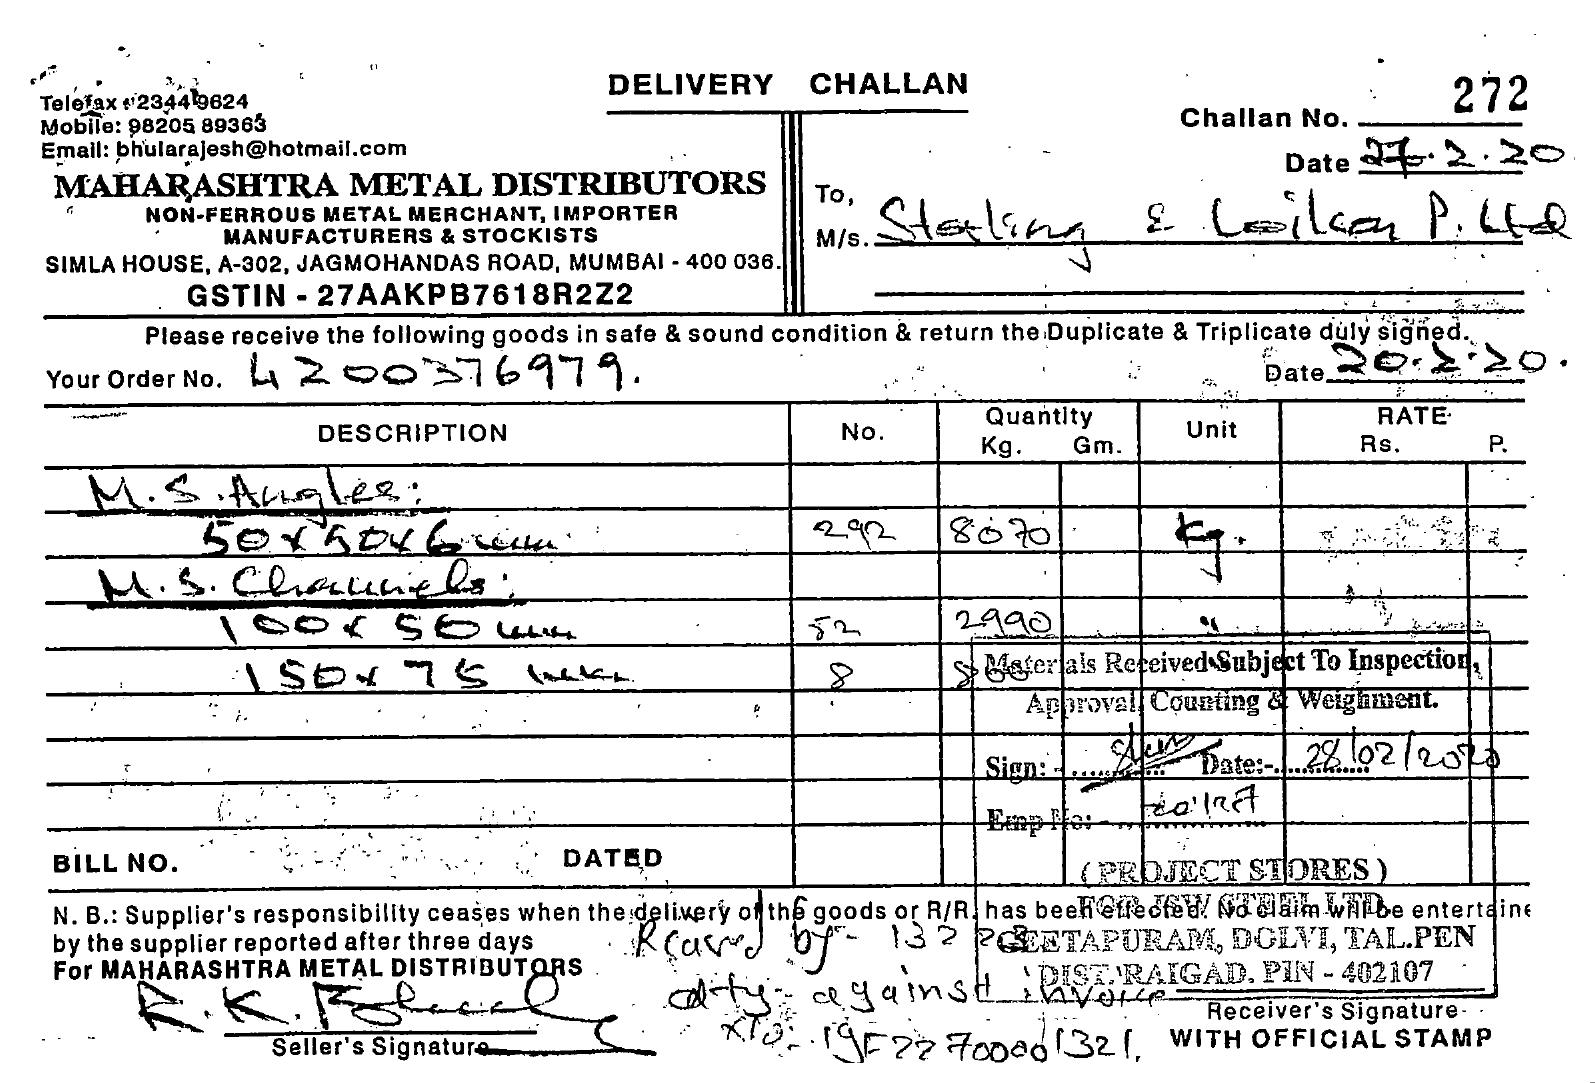 DELIVERY CHALLAN
Telefax : 23449624
Mobile: 98205 89363
Email: bhularajesh@hotmail.com
MAHARASHTRA METAL DISTRIBUTORS
NON-FERROUS METAL MERCHANT, IMPORTER
MANUFACTURERS & STOCKISTS
SIMLA HOUSE, A-302, JAGMOHANDAS ROAD, MUMBAI - 400 036.
GSTIN - 27AAKPB7618R2Z2
Challan No. 272
Date 27.2.20
To,
M/s. Sterling & Wilson P. Ltd
Please receive the following goods in safe & sound condition & return the Duplicate & Triplicate duly signed.
Your Order No. 4200376979. Date 20.2.20.
DESCRIPTION No. Quantity Kg. Gm. Unit RATE Rs. P.
M.S. Angles:
50x50x6 mm 292 8070 Kg.
M.S. Channels:
100x50 mm 52 2990 "
150x75 mm 8 860
Materials Received Subject To Inspection,
Approval, Counting & Weighment.
Sign: - Date:- 28/02/2020
Emp No: -
BILL NO. DATED
(PROJECT STORES)
FOR JSW STEEL LTD.
GEETAPURAM, DOLVI, TAL.PEN
DIST. RAIGAD. PIN - 402107
N. B.: Supplier's responsibility ceases when the delivery of the goods or R/R. has been effected. No claim will be entertaine
by the supplier reported after three days
For MAHARASHTRA METAL DISTRIBUTORS
Received by-
qty- against invoice
Seller's Signature
Receiver's Signature
WITH OFFICIAL STAMP